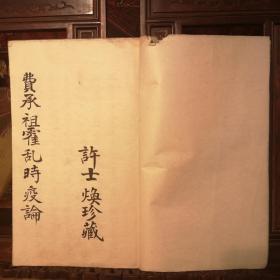 許士煥珍藏
費承祖霍乱時疫論